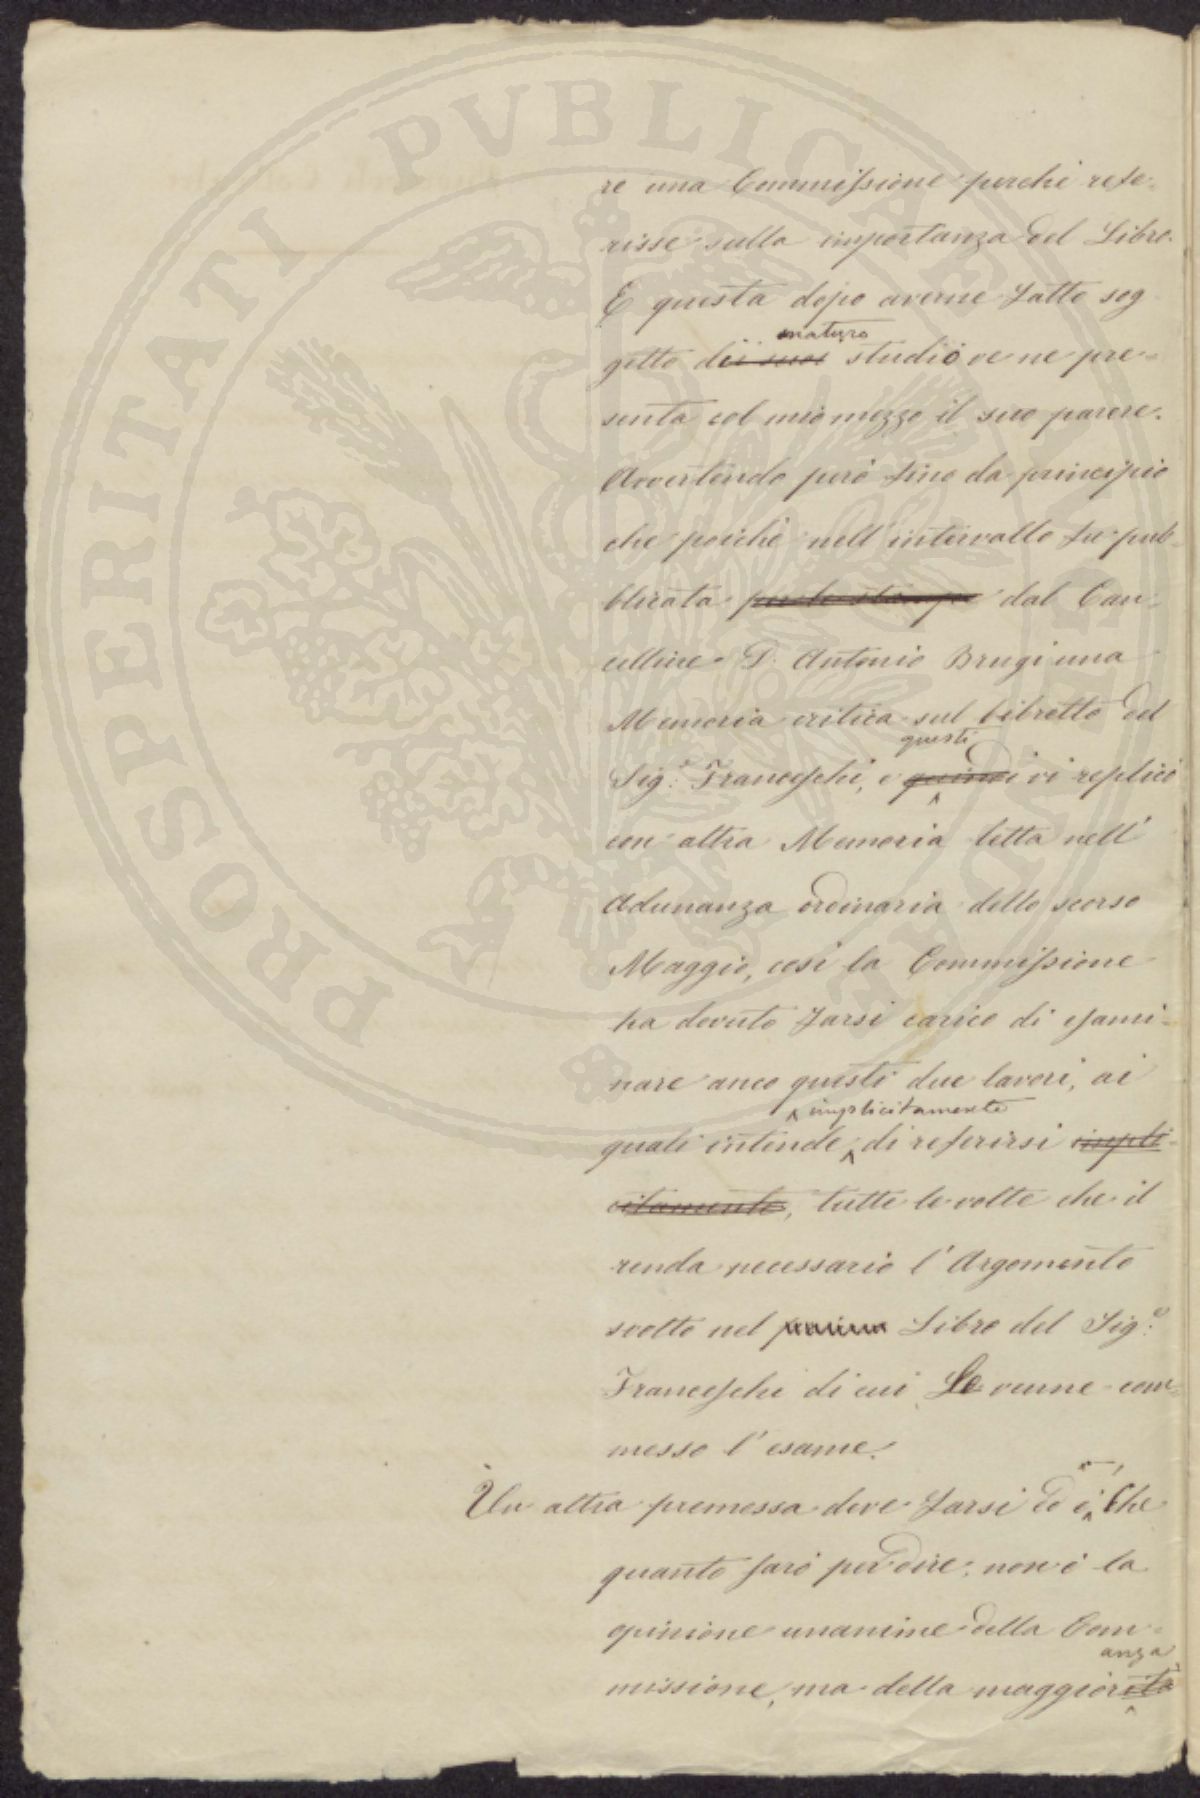 PROSPERITATI PVBLICAE
re una Commissione perchè refe-
risse sulla importanza del Libro.
E questa dopo averne fatto sog
maturo
getto dei suoi studio ve ne pre-
senta col mio mezzo il suo parere.
Avvertendo però fino da principio
che poichè nell'intervallo fu pub-
blicata per le stampe dal Can-
celliere D. Antonio Brugi una
Memoria critica sul Libretto del
questi
Sig.e Franceschi, e quindi vi replicò
con altra Memoria letta nell'
Adunanza ordinaria dello scorso
Maggio, così la Commissione
ha dovuto farsi carico di esami-
nare anco questi due lavori, ai
implicitamente
quali intende, di referirsi impli-
citamente, tutte le volte che il
renda necessario l'Argomento
svolto nel primo Libro del Sig.e
Franceschi di cui Le venne com-
messo l'esame.
Un altra premessa deve farsi ed è, Che
quanto sarò per dire, non è la
opinione unanime della Com-
anza
missione, ma della maggiorità